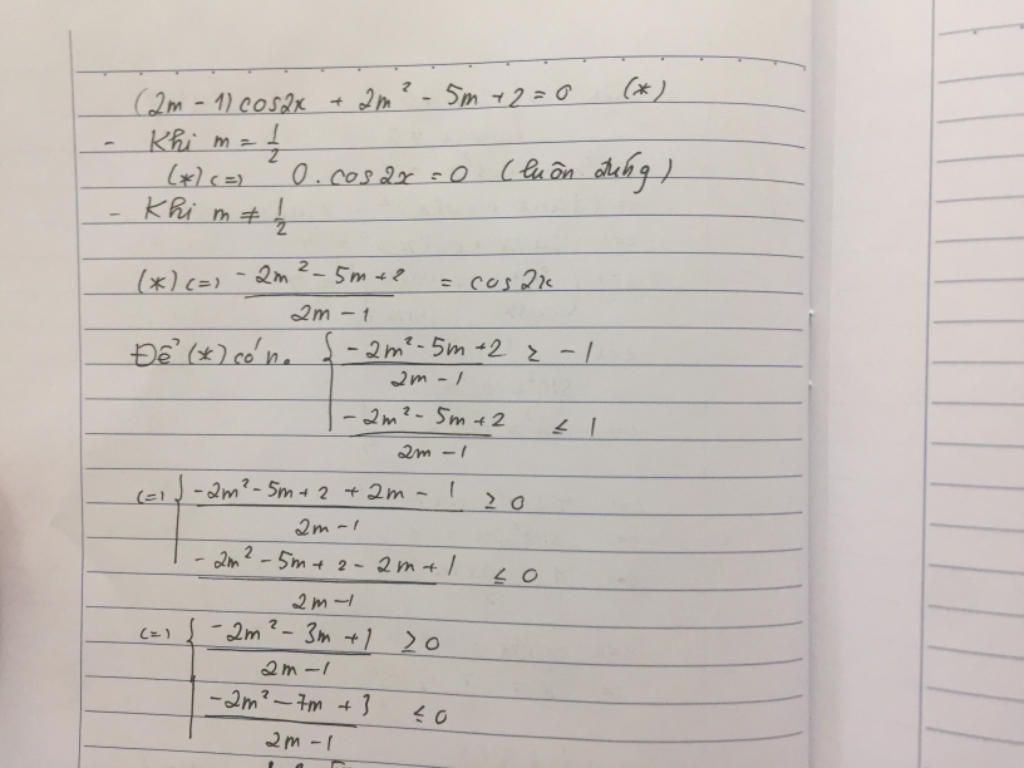 (2m - 1) cos2x + 2m² - 5m + 2 = 0 (*)
- Khi m = 1/2
(*) <=> 0. cos2x = 0 (luôn đúng)
- Khi m ≠ 1/2
(*) <=> (-2m² - 5m + 2)/(2m - 1) = cos2x
Để (*) có n. { (-2m² - 5m + 2)/(2m - 1) ≥ -1
(-2m² - 5m + 2)/(2m - 1) ≤ 1
<=> { (-2m² - 5m + 2 + 2m - 1)/(2m - 1) ≥ 0
(-2m² - 5m + 2 - 2m + 1)/(2m - 1) ≤ 0
<=> { (-2m² - 3m + 1)/(2m - 1) ≥ 0
(-2m² - 7m + 3)/(2m - 1) ≤ 0